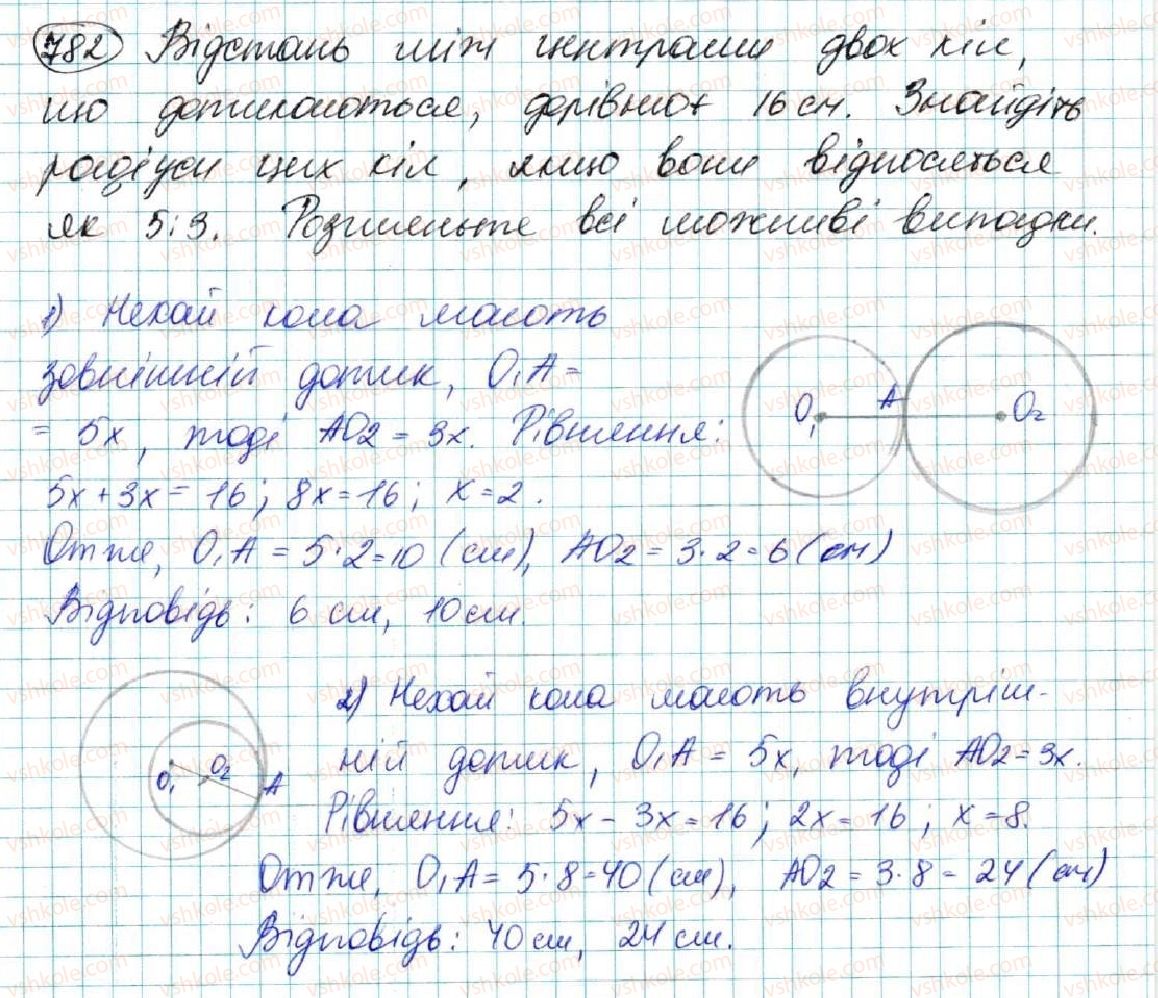 782 Відстань між центрами двох кіл,
що дотикаються, дорівнює 16 см. Знайдіть
радіуси цих кіл, якщо вони відносяться
як 5:3. Розгляньте всі можливі випадки.
1) Нехай кола мають
зовнішній дотик, O₁A =
= 5x, тоді AO₂ = 3x. Рівняння:
5x + 3x = 16; 8x = 16; x = 2.
Отже, O₁A = 5·2 = 10 (см), AO₂ = 3·2 = 6 (см)
Відповідь: 6 см, 10 см.
O₁ A O₂
2) Нехай кола мають внутріш-
ній дотик, O₁A = 5x, тоді AO₂ = 3x.
Рівняння: 5x - 3x = 16; 2x = 16; x = 8.
Отже, O₁A = 5·8 = 40 (см), AO₂ = 3·8 = 24 (см)
Відповідь: 40 см, 24 см.
O₁ O₂ A
vshkole.com